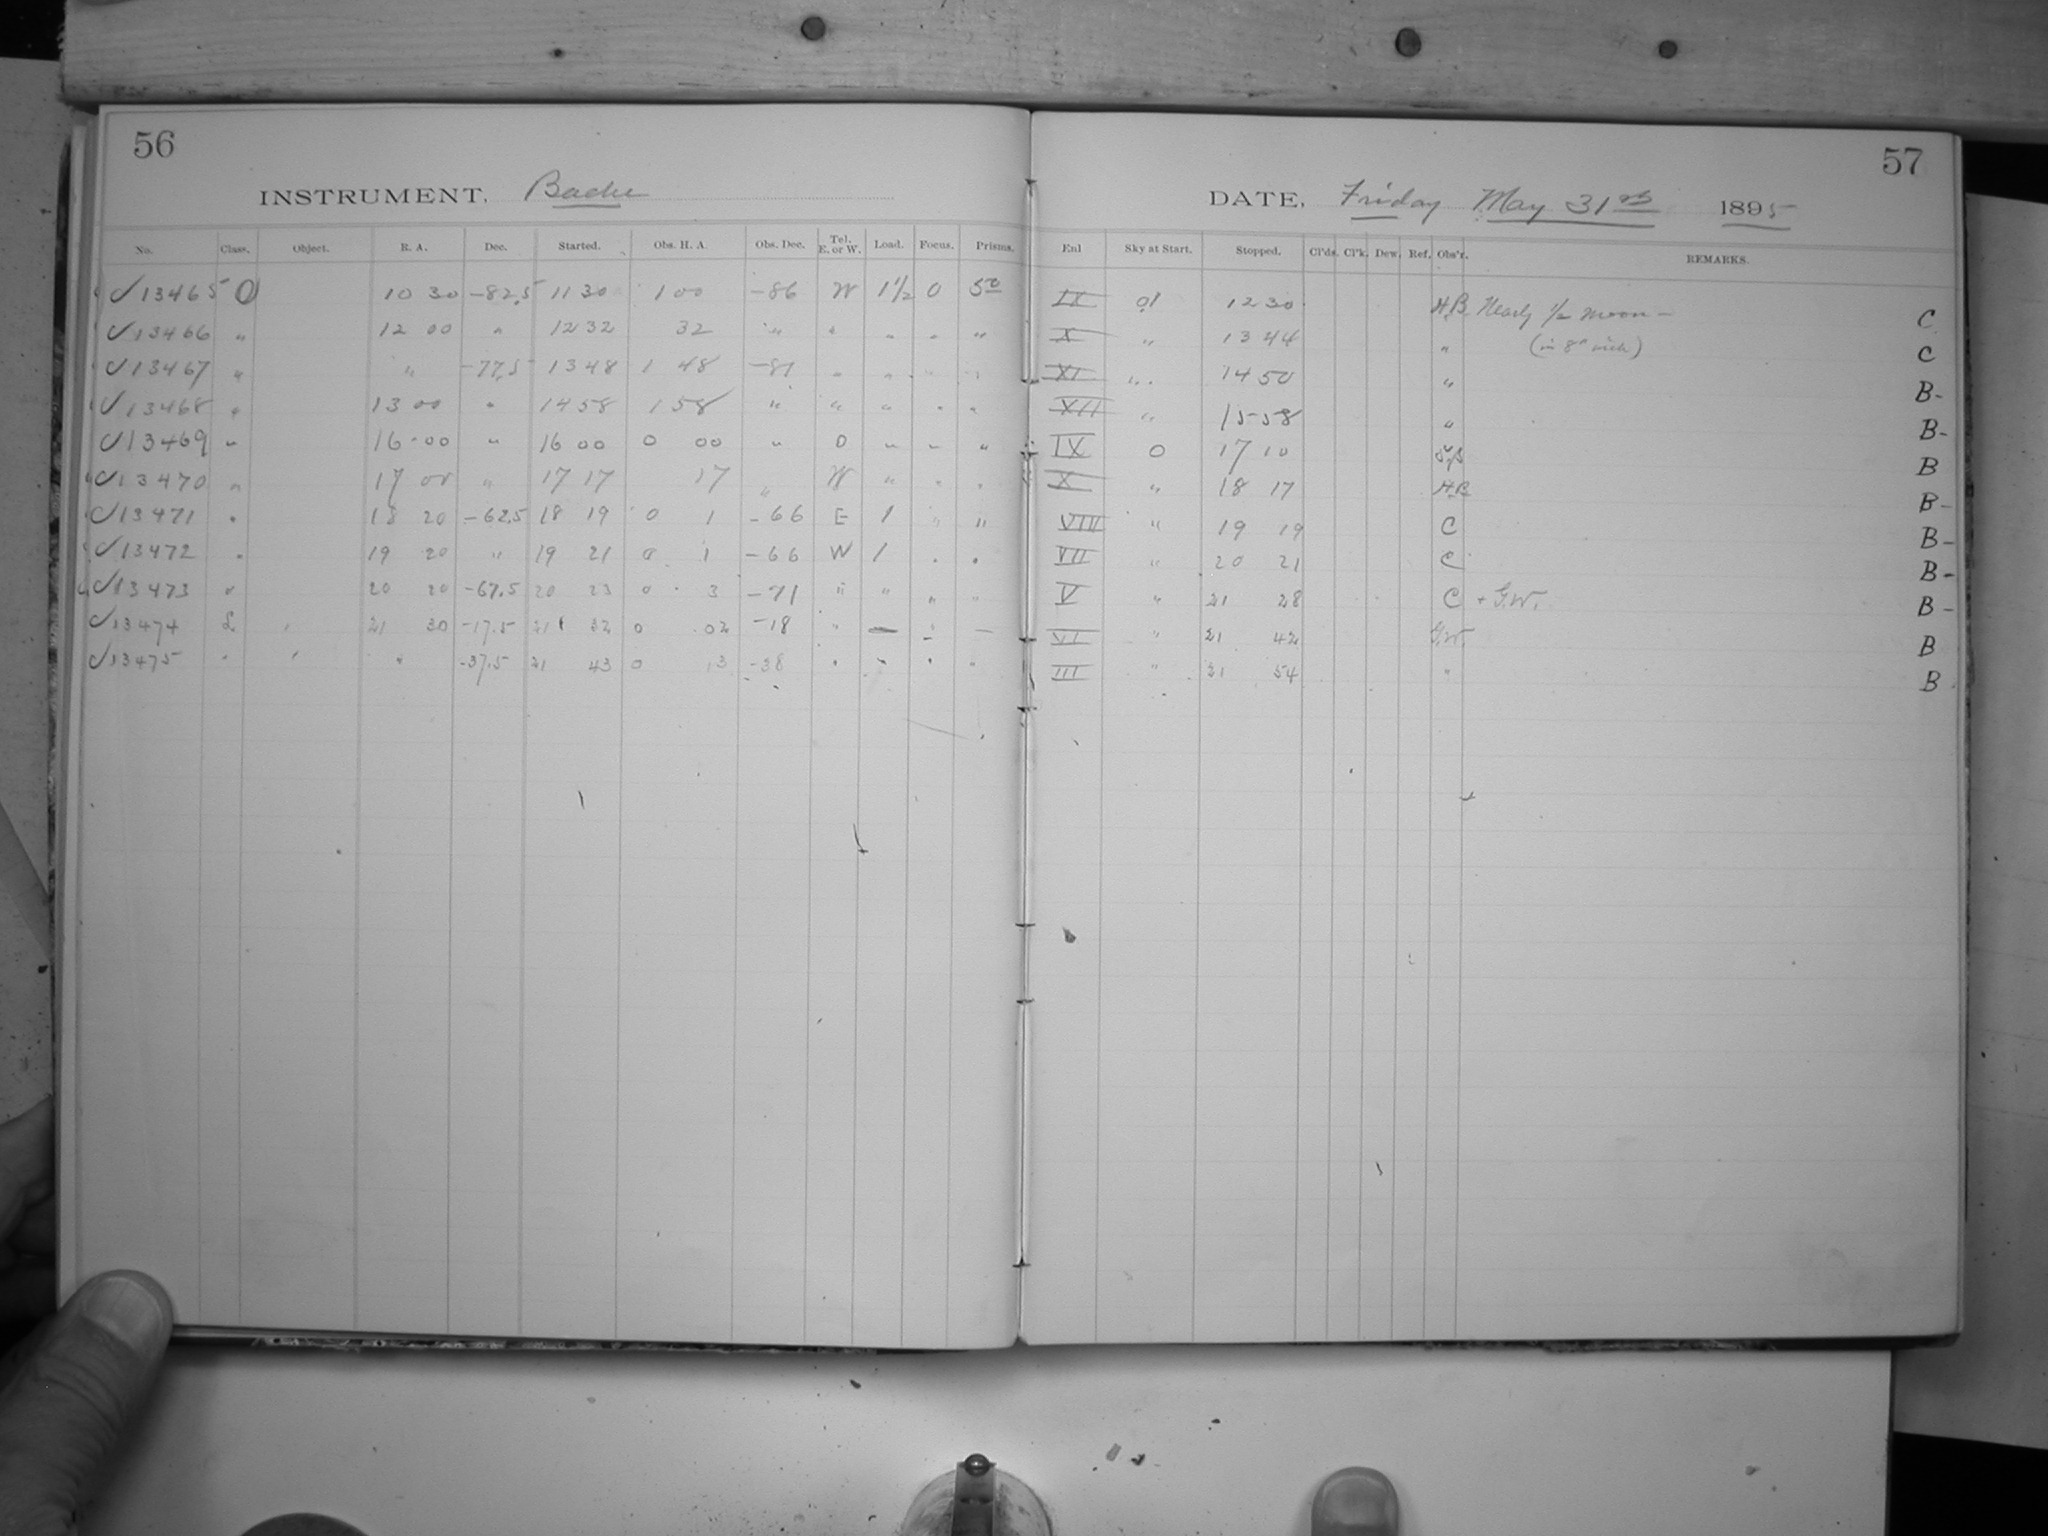 56
INSTRUMENT. Bache
No. Class. Object. R. A. Dec. Started. Obs. H. A. Obs. Dec. Tel. E. or W. Load. Focus. Prisms.
13465 O 10 30 -82.5 11 30 1 00 -86 W 1 1/2 0 50
13466 " 12 00 " 12 32 32 " " " " "
13467 " " -77.5 13 48 1 48 -81 " " " "
13468 " 13 00 " 14 58 1 58 " " " " "
13469 " 16 00 " 16 00 0 00 " O " " "
13470 " 17 00 " 17 17 17 " W " " "
13471 " 18 20 -62.5 18 19 0 1 -66 E 1 " "
13472 " 19 20 " 19 21 0 1 -66 W 1 " "
13473 " 20 20 -67.5 20 23 0 3 -71 " " " "
13474 L 21 30 -17.5 21 32 0 02 -18 " — " —
13475 " " -37.5 21 43 0 13 -38 " " " "
57
DATE, Friday May 31st 1895
Enl Sky at Start. Stopped. Cl'ds. Cl'k. Dew. Ref. Obs'r. REMARKS.
IX 01 12 30 H.B. Nearly 1/2 moon — C
X " 13 44 " C
XI " 14 50 " B-
XII " 15 58 " B-
IX 0 17 10 B
X " 18 17 H.B. B-
VIII " 19 19 C B-
VII " 20 21 C B-
V " 21 28 C + G.W. B-
VI " 21 42 G.W. B
III " 21 54 " B